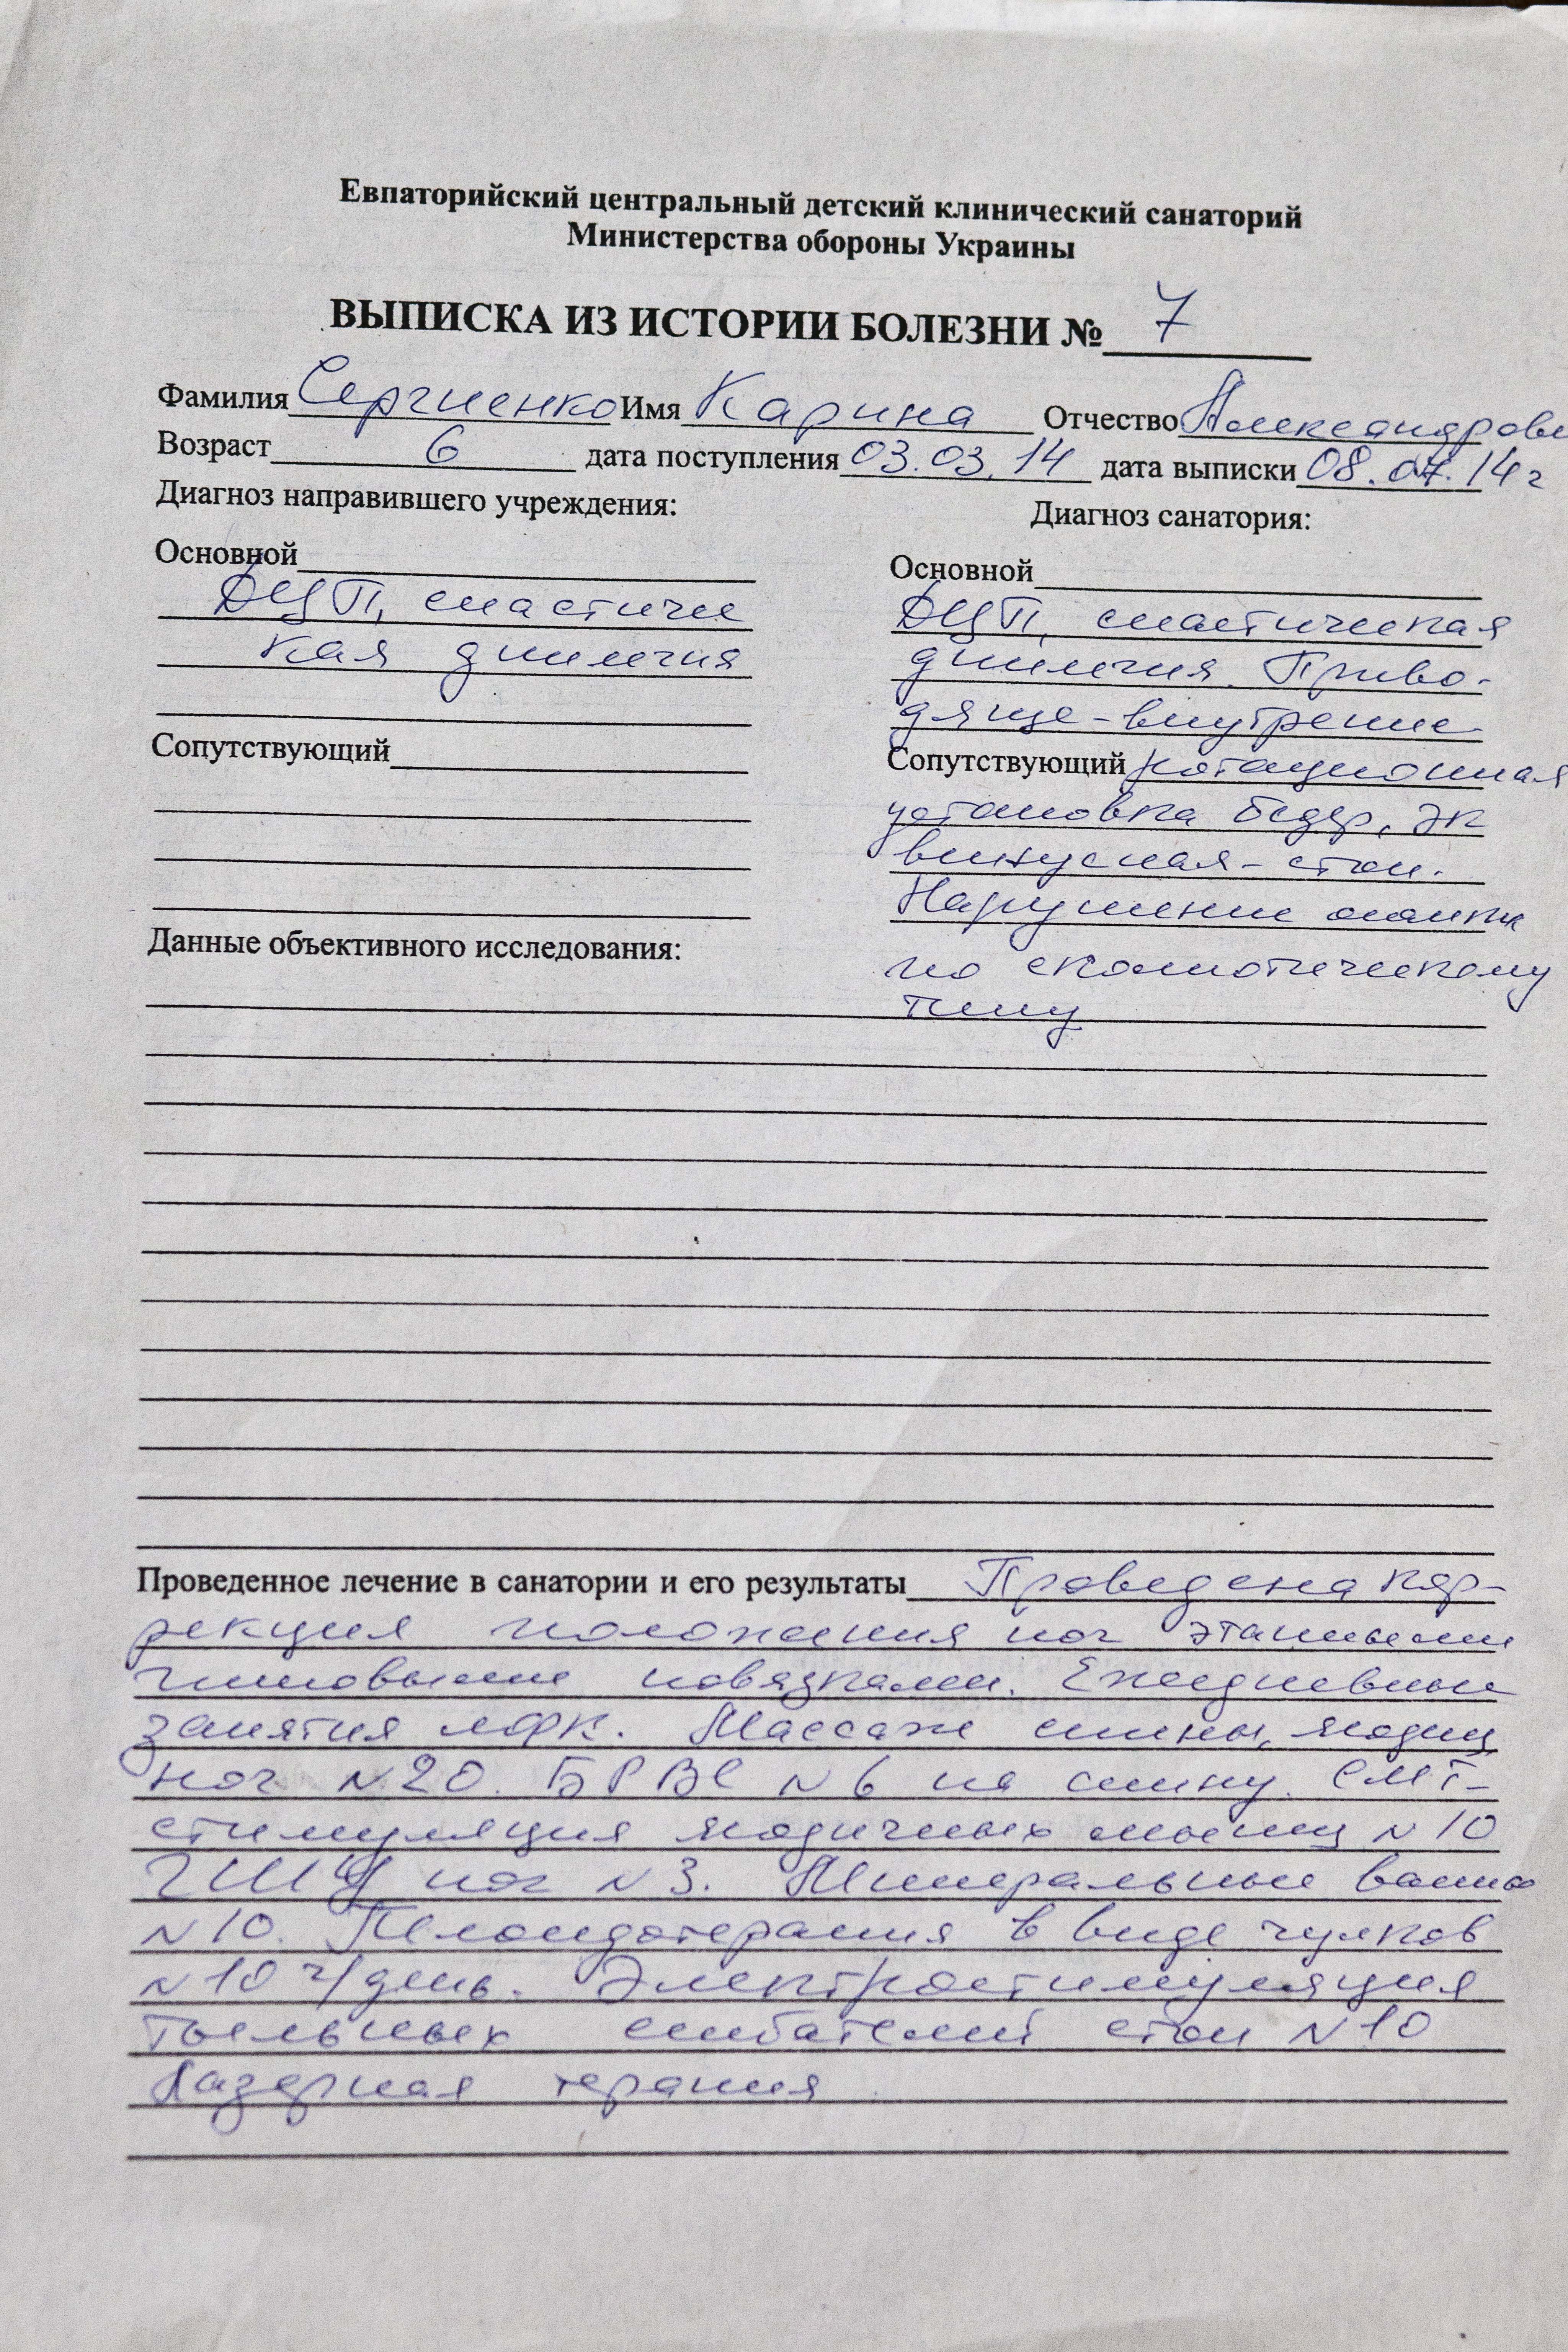 Евпаторийский центральный детский клинический санаторий
Министерства обороны Украины
ВЫПИСКА ИЗ ИСТОРИИ БОЛЕЗНИ № 7
Фамилия Сергиенко Имя Карина Отчество Александровн
Возраст 6 дата поступления 03.03.14 дата выписки 08.07.14г
Диагноз направившего учреждения:
Основной
ДЦП, спастичес
кая диплегия
Сопутствующий
Диагноз санатория:
Основной
ДЦП, спастическая
диплегия. Приво-
дяще-внутренне
Сопутствующий ротационная
установка бедер, эк
винусная - стоп.
Нарушение осанки
по сколиотическому
типу
Данные объективного исследования:
Проведенное лечение в санатории и его результаты Проведена кор-
рекция положения ног этапными
гипсовыми повязками. Ежедневные
занятия ЛФК. Массаж спины, ягодиц
ног N20. БРВС N6 на спину. СМТ-
стимуляция ягодичных мышц N10
ног N3. Минеральные ванны
N10. Пелоидотерапия в виде чулков
N10 ч/день. Электростимуляция
тыльных сгибателей стоп N10
Лазерная терапия.